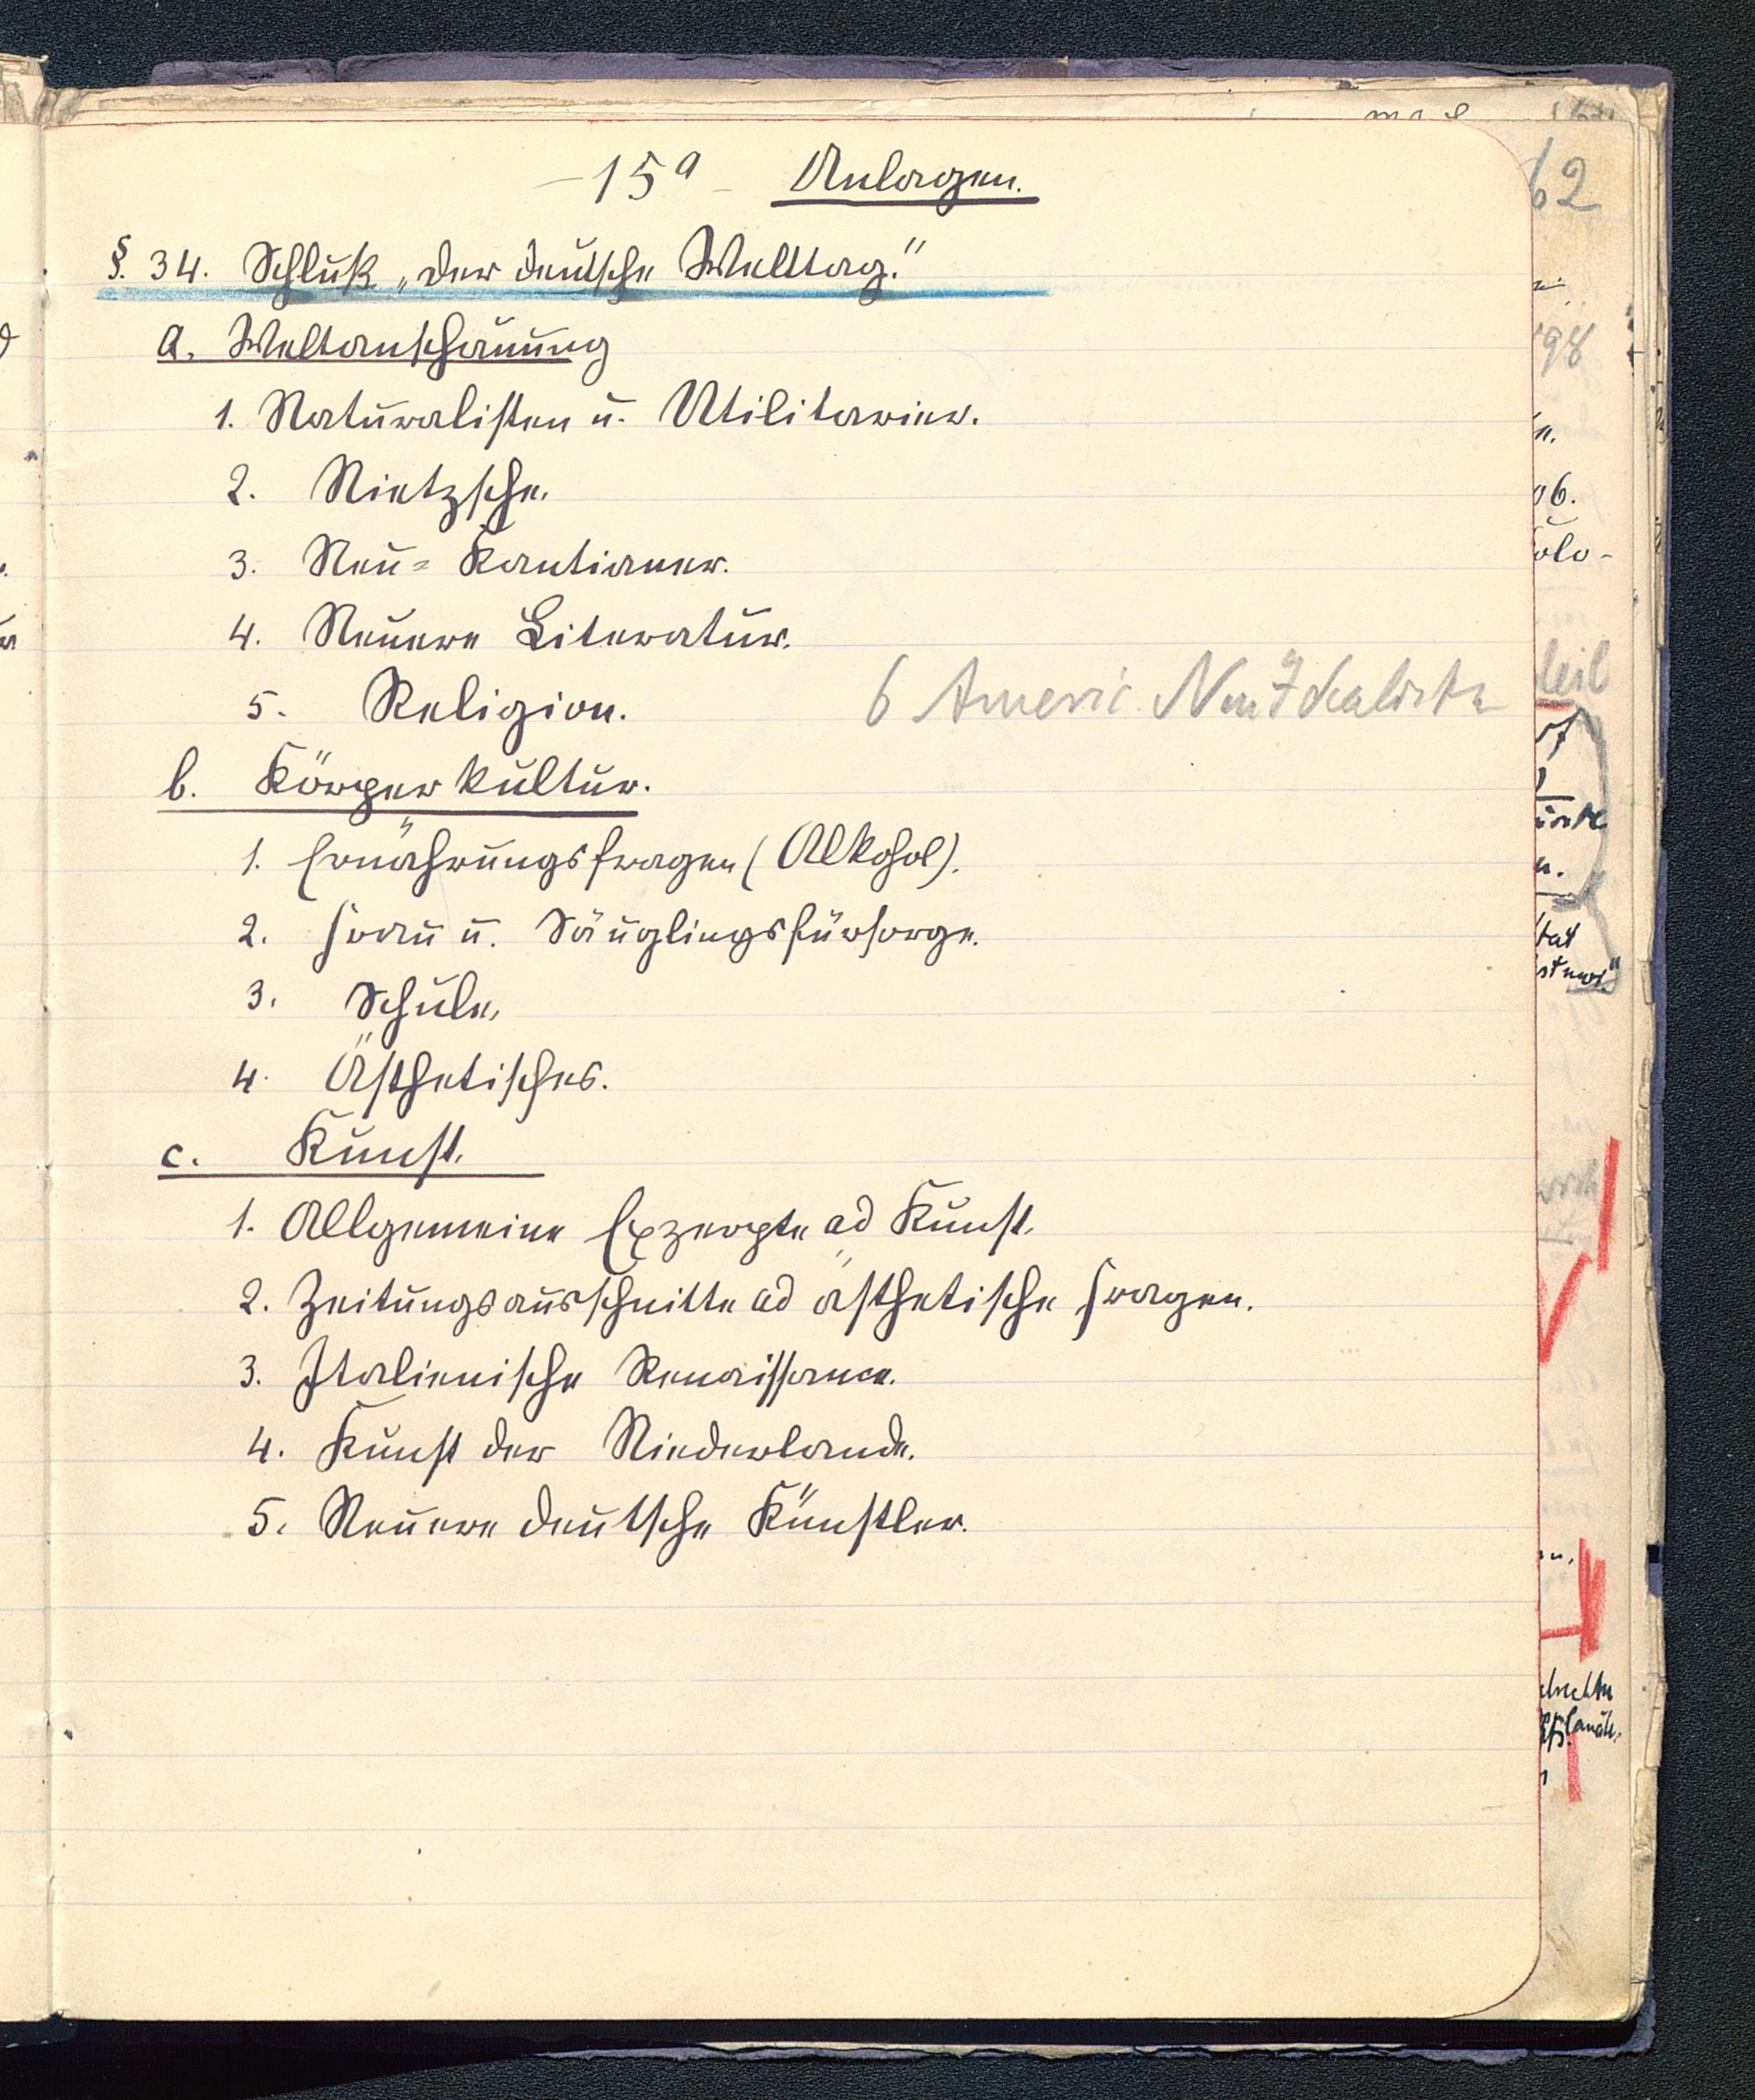 – 15a – Anlagen.
§. 34. Schluß „der deutsche Welttag."
a. Weltanschauung
1. Naturalisten u. Utilitarier.
2. Nietzsche.
3. Neu= Kantianer.
4. Neuere Literatur.
5. Religion. 6 Americ. Neu Idealisten
b. Körperkultur.
1. Ernährungsfragen (Alkohol).
2. Frau u. Säuglingsfürsorge.
3. Schule.
4. Ästhetisches.
c. Kunst.
1. Allgemeine Exzerpte ad Kunst.
2. Zeitungsausschnitte ad ästhetische Fragen.
3. Italienische Renaissance.
4. Kunst der Niederlande.
5. Neuere deutsche Künstler.
62
98
06.
olo-